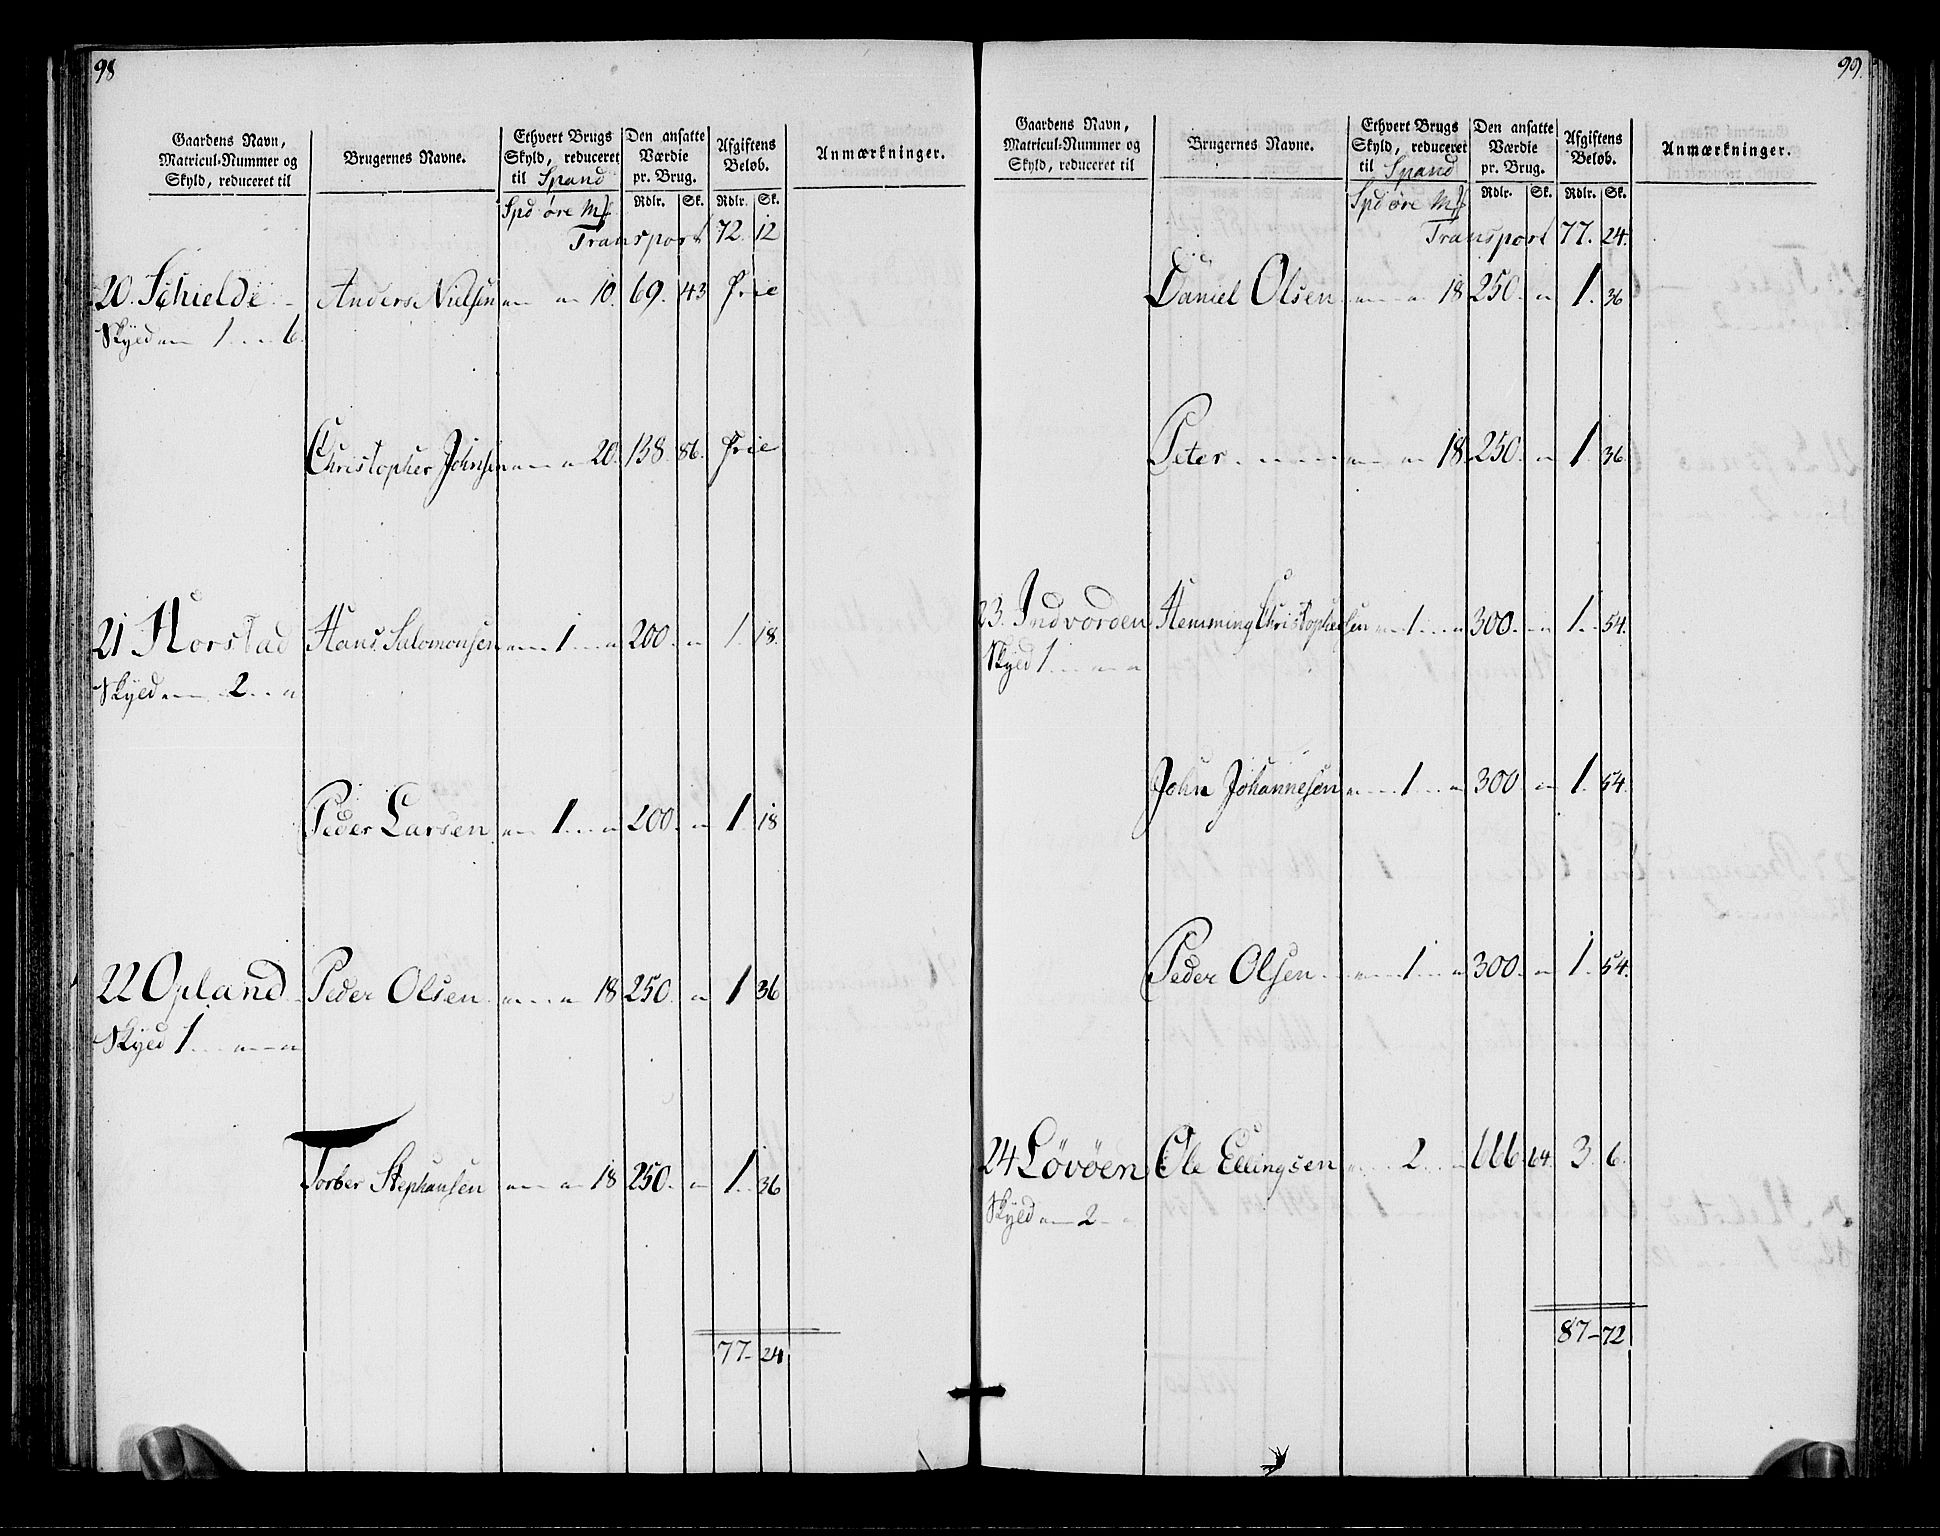 98
Gaardens Navn, Matricul-Nummer og Skyld, reduceret til
Brugernes Navne.
Ethvert Brugs Skyld, reduceret til Spand
Den ansatte Værdie pr. Brug.
Afgiftens Beløb.
Anmærkninger.
Spd øre Mk
Rdlr. Sk. Rdlr. Sk.
Transport 72. 12
20. Schielde Anders Nielsen " " 10. 69. 43 Frie
Skyld " 1 " 6.
Christopher Johnsen " " 20. 138. 86. Frie
21 Horstad Hans Salomonsen " 1 " 200. " 1. 18.
Skyld " 2 "
Peder Larsen " 1 " 200. " 1. 18
22 Opland Peder Olsen " " 18 250. " 1 36
Skyld 1 " "
Torber Stephansen " " 18 250. " 1. 36
77 - 24
99.
Gaardens Navn, Matricul-Nummer og Skyld, reduceret til
Brugernes Navne.
Ethvert Brugs Skyld, reduceret til Spand
Den ansatte Værdie pr. Brug.
Afgiftens Beløb.
Anmærkninger.
Spd øre Mk
Rdlr. Sk. Rdlr. Sk.
Transport 77. 24.
Daniel Olsen " " 18 250. " 1. 36
Peter " " 18. 250. " 1. 36.
23. Indvorden Hemming Christophersen " 1 " 300. " 1. 54.
Skyld 1 " "
John Johannesen " 1 " 300 " 1. 54.
Peder Olsen " 1 " 300. " 1. 54.
24 Løvøen Ole Ellingsen " 2 " 666 64. 3. 6.
Skyld " 2 "
87 - 72